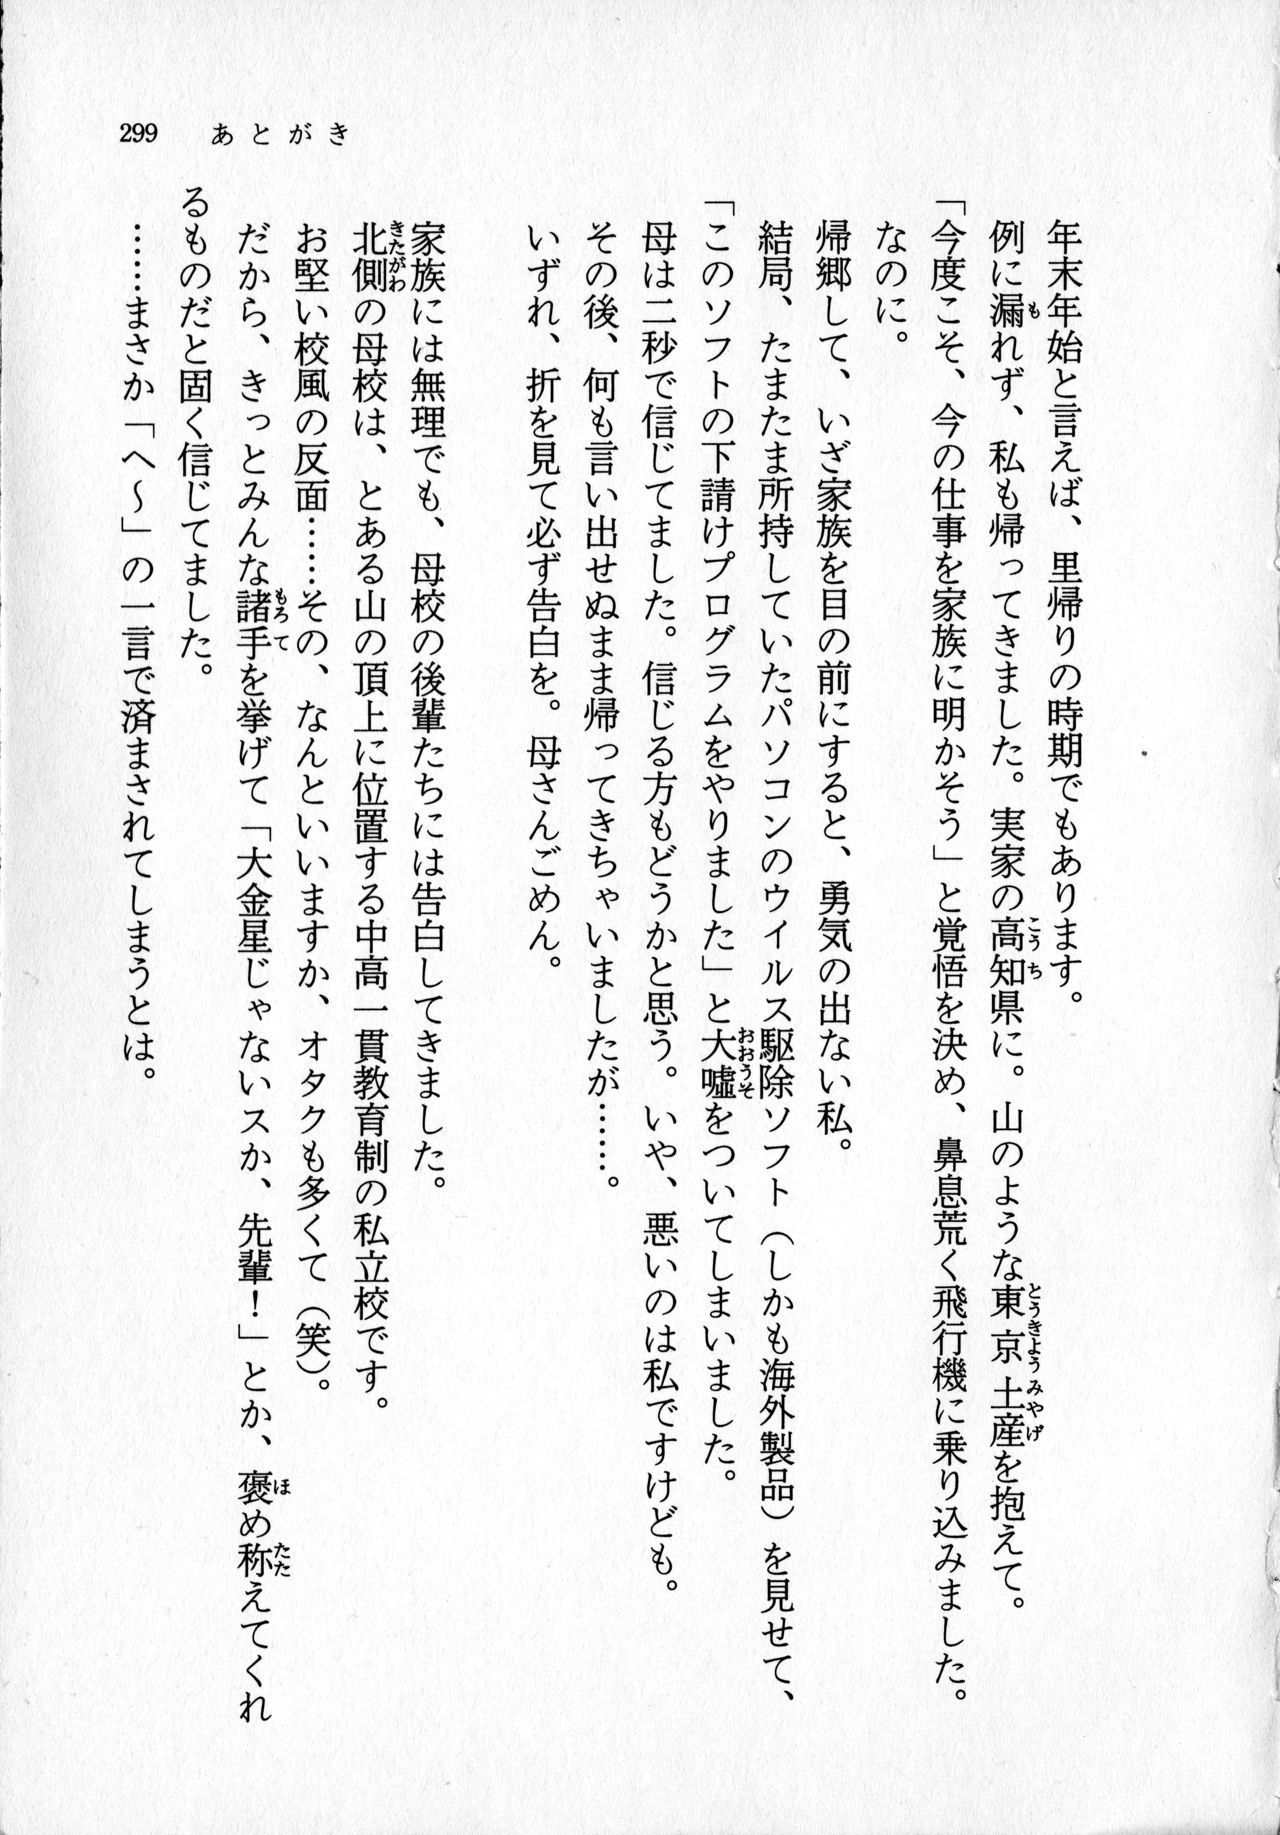 299　あとがき
年末年始と言えば、里帰りの時期でもあります。
例に漏れず、私も帰ってきました。実家の高知県に。山のような東京土産を抱えて。
「今度こそ、今の仕事を家族に明かそう」と覚悟を決め、鼻息荒く飛行機に乗り込みました。
なのに。
帰郷して、いざ家族を目の前にすると、勇気の出ない私。
結局、たまたま所持していたパソコンのウイルス駆除ソフト（しかも海外製品）を見せて、
「このソフトの下請けプログラムをやりました」と大嘘をついてしまいました。
母は二秒で信じてました。信じる方もどうかと思う。いや、悪いのは私ですけども。
その後、何も言い出せぬまま帰ってきちゃいましたが……。
いずれ、折を見て必ず告白を。母さんごめん。
家族には無理でも、母校の後輩たちには告白してきました。
北側の母校は、とある山の頂上に位置する中高一貫教育制の私立校です。
お堅い校風の反面……その、なんといいますか、オタクも多くて（笑）。
だから、きっとみんな諸手を挙げて「大金星じゃないスか、先輩！」とか、褒め称えてくれ
るものだと固く信じてました。
……まさか「へ〜」の一言で済まされてしまうとは。